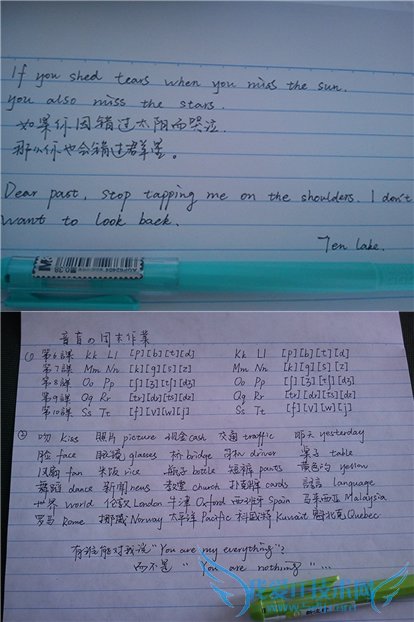 If you shed tears when you miss the sun,
you also miss the stars.
如果你因错过太阳而哭泣
那么你也会错过群星。
Dear past, stop tapping me on the shoulders. I don't
want to look back.
Ten lake.
黑0.38
AGP62404
音育の周末作業
① 第6課 Kk Ll [p][b][t][d] Kk Ll [p][b][t][d]
第7課 Mm Nn [k][g][s][z] Mm Nn [k][g][s][z]
第8課 Oo Pp [ʃ][ʒ][tʃ][dʒ] Oo Pp [ʃ][ʒ][tʃ][dʒ]
第9課 Qq Rr [tr][dr][ts][dz] Qq Rr [tr][dr][ts][dz]
第10課 Ss Tt [f][v][w][j] Ss Tt [f][v][w][j]
② 吻 kiss 照片 picture 现金 cash 交通 traffic 昨天 yesterday
脸 face 眼镜 glasses 桥 bridge 司机 driver 桌子 table
风扇 fan 米饭 rice 瓶子 bottle 短裤 pants 黄色的 yellow
舞蹈 dance 新闻 news 教堂 church 扑克牌 cards 語言 language
世界 world 伦敦 London 牛津 Oxford 西班牙 Spain 马来西亚 Malaysia
罗马 Rome 挪威 Norway 太平洋 Pacific 科威特 Kuwait 魁北克 Quebec
有谁能对我说"You are my everything"?
而不是 "You are nothing"...